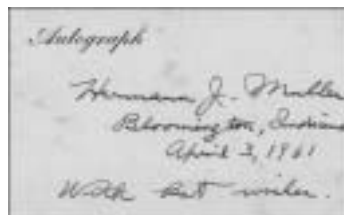 Autograph
Hermann J. Muller
Bloomington, Indiana
April 3, 1961
With best wishes.